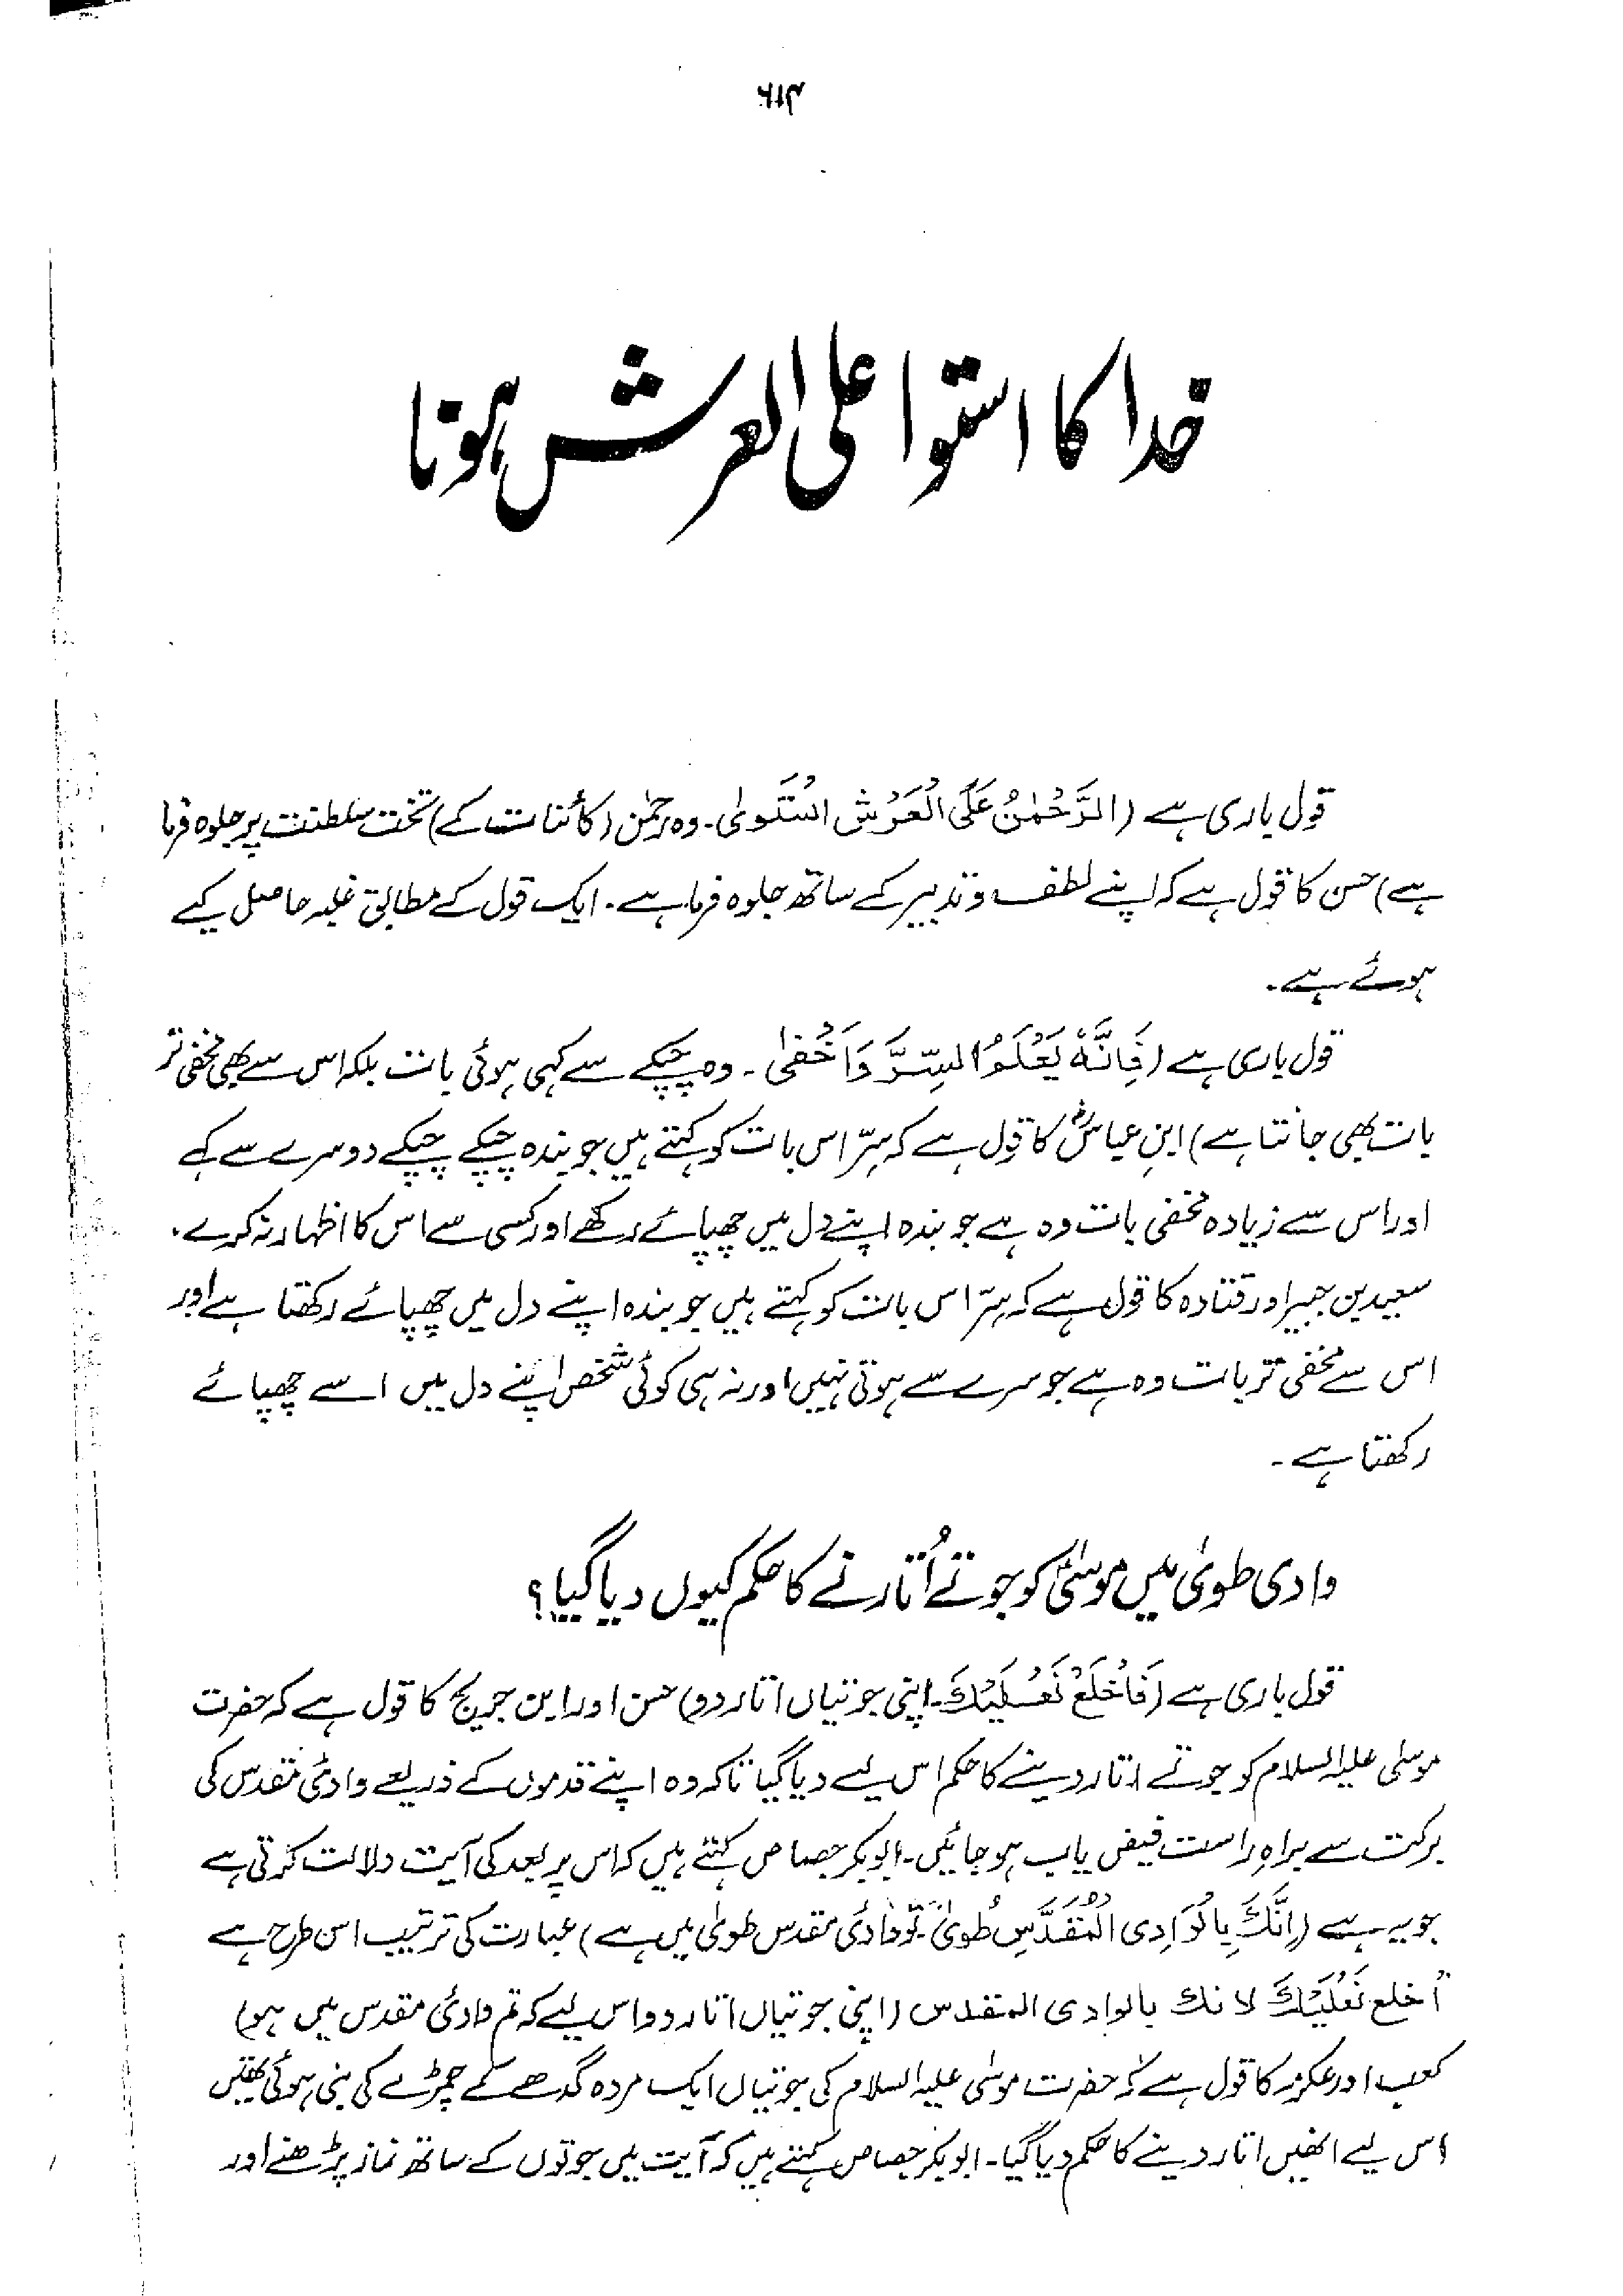 ۴۱۶
خدا کا استوا علی العرش ہونا
قول باری ہے (اَلرَّحْمٰنُ عَلَی الْعَرْشِ اسْتَوٰی۔ وہ رحمٰن (کائنات کے) تخت سلطنت پر جلوہ فرما
ہے) حسن کا قول ہے کہ اپنے لطف و تدبیر کے ساتھ جلوہ فرما ہے۔ ایک قول کے مطابق غلبہ حاصل کیے
ہوئے ہے۔
قول باری ہے (فَاِنَّهٗ یَعْلَمُ السِّرَّ وَاَخْفٰی۔ وہ چپکے سے کہی ہوئی بات بلکہ اس سے بھی مخفی تر
بات بھی جانتا ہے) ابنِ عباسؓ کا قول ہے کہ سِرّ اس بات کو کہتے ہیں جو بندہ چپکے چپکے دوسرے سے کہے
اور اس سے زیادہ مخفی بات وہ ہے جو بندہ اپنے دل میں چھپائے رکھے اور کسی سے اس کا اظہار نہ کرے۔
سعید بن جبیر اور قتادہ کا قول ہے کہ سِرّ اس بات کو کہتے ہیں جو بندہ اپنے دل میں چھپائے رکھتا ہے اور
اس سے مخفی تر بات وہ ہے جو سرے سے ہوتی نہیں اور نہ ہی کوئی شخص اپنے دل میں اسے چھپائے
رکھتا ہے۔
وادی طویٰ میں موسیٰؑ کو جوتے اُتارنے کا حکم کیوں دیا گیا؟
قول باری ہے (فَاخْلَعْ نَعْلَیْكَ۔ اپنی جوتیاں اتار دو) حسن اور ابن جریج کا قول ہے کہ حضرت
موسیٰ علیہ السلام کو جوتے اتار دینے کا حکم اس لیے دیا گیا تاکہ وہ اپنے قدموں کے ذریعے وادیٔ مقدس کی
برکت سے براہِ راست فیض یاب ہو جائیں۔ ابوبکر جصاص کہتے ہیں کہ اس پر بعد کی آیت دلالت کرتی ہے
جو یہ ہے (اِنَّكَ بِالْوَادِی الْمُقَدَّسِ طُوًی۔ تو وادیٔ مقدس طویٰ میں ہے) عبارت کی ترتیب اس طرح ہے
"اخلع نَعْلَیْكَ لانك بالوادی المقدس (اپنی جوتیاں اتار دو اس لیے کہ تم وادیٔ مقدس میں ہو)
کعب اور عکرمہ کا قول ہے کہ حضرت موسیٰ علیہ السلام کی جوتیاں ایک مردہ گدھے کے چمڑے کی بنی ہوئی تھیں
اس لیے انھیں اتار دینے کا حکم دیا گیا۔ ابوبکر جصاص کہتے ہیں کہ آیت میں جوتوں کے ساتھ نماز پڑھنے اور